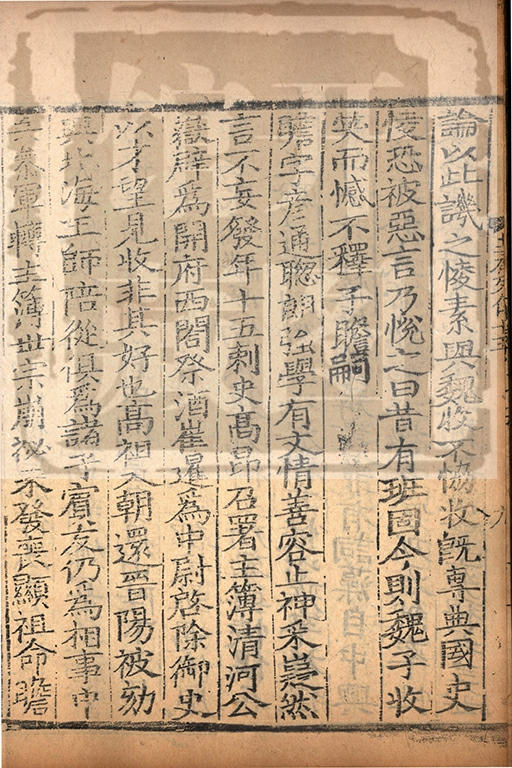 論以此譏之㥄素與魏收不恊收旣專典國史
㥄恐被惡言乃悅之曰昔有班固今則魏子收
笑而憾不釋子瞻嗣
瞻字彦通聦朗強學有文情善容止神采嶷然
言不妄發年十五刺史髙昂召署主簿清河公
嶽辟爲開府西閤祭酒崔暹爲中尉啓除御史
以才望見收非其好也髙祖入朝還晉陽被勑
與北海王師陪從俱爲諸子賔友仍爲相事中
兵叅軍轉主簿世宗崩祕未發喪顯祖命瞻